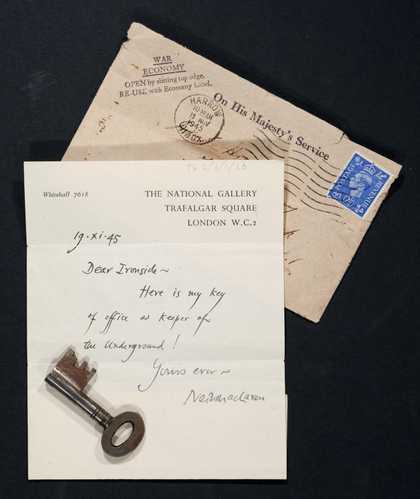 WAR
ECONOMY
OPEN by slitting top edge.
RE-USE with Economy Label.
HARROW
1945
On His Majesty's Service
POSTAGE
REVENUE
Whitehall 7618
THE NATIONAL GALLERY
TRAFALGAR SQUARE
LONDON W.C.2
19.xi.45
Dear Ironside ~
Here is my key
of office as Keeper of
the Underground!
Yours ever ~
Neil Maclaren